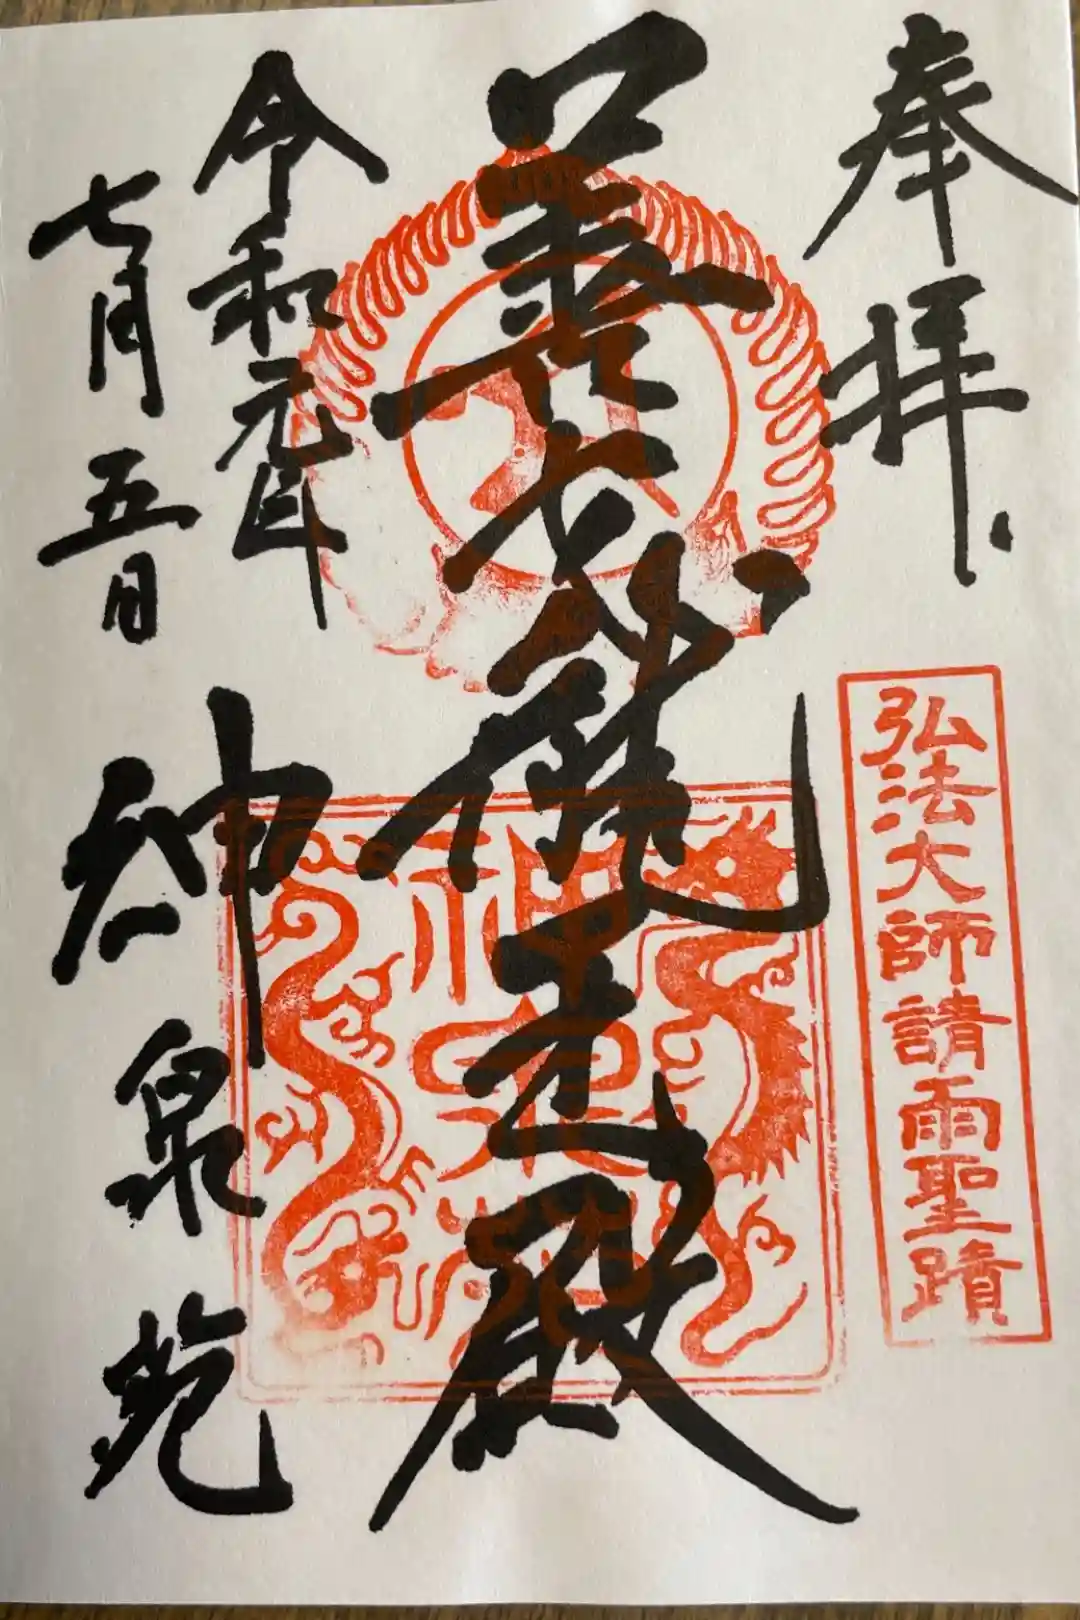 奉拝
弘法大師請雨聖蹟
善女龍王殿
令和元年
七月五日
神泉苑
神泉苑